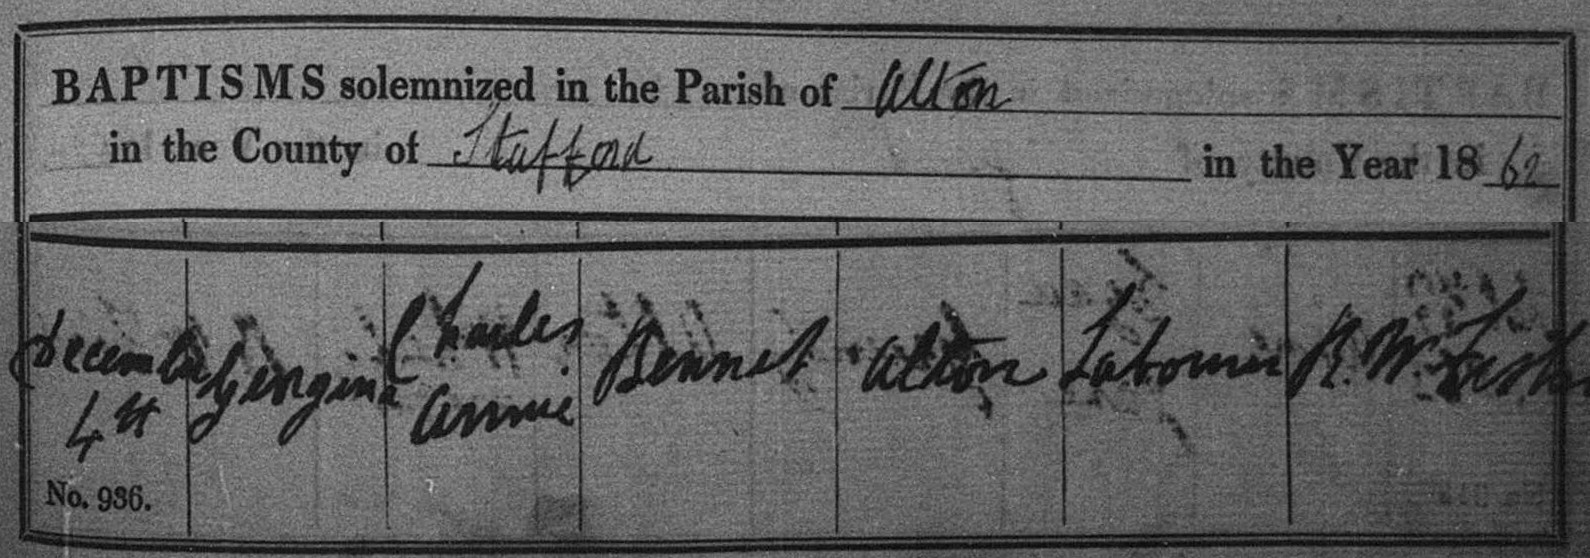 BAPTISMS solemnized in the Parish of Alton
in the County of Stafford in the Year 1862
December Charles
Georgina Bennet Alton Labourer R. W.
4th Annie
No. 936.